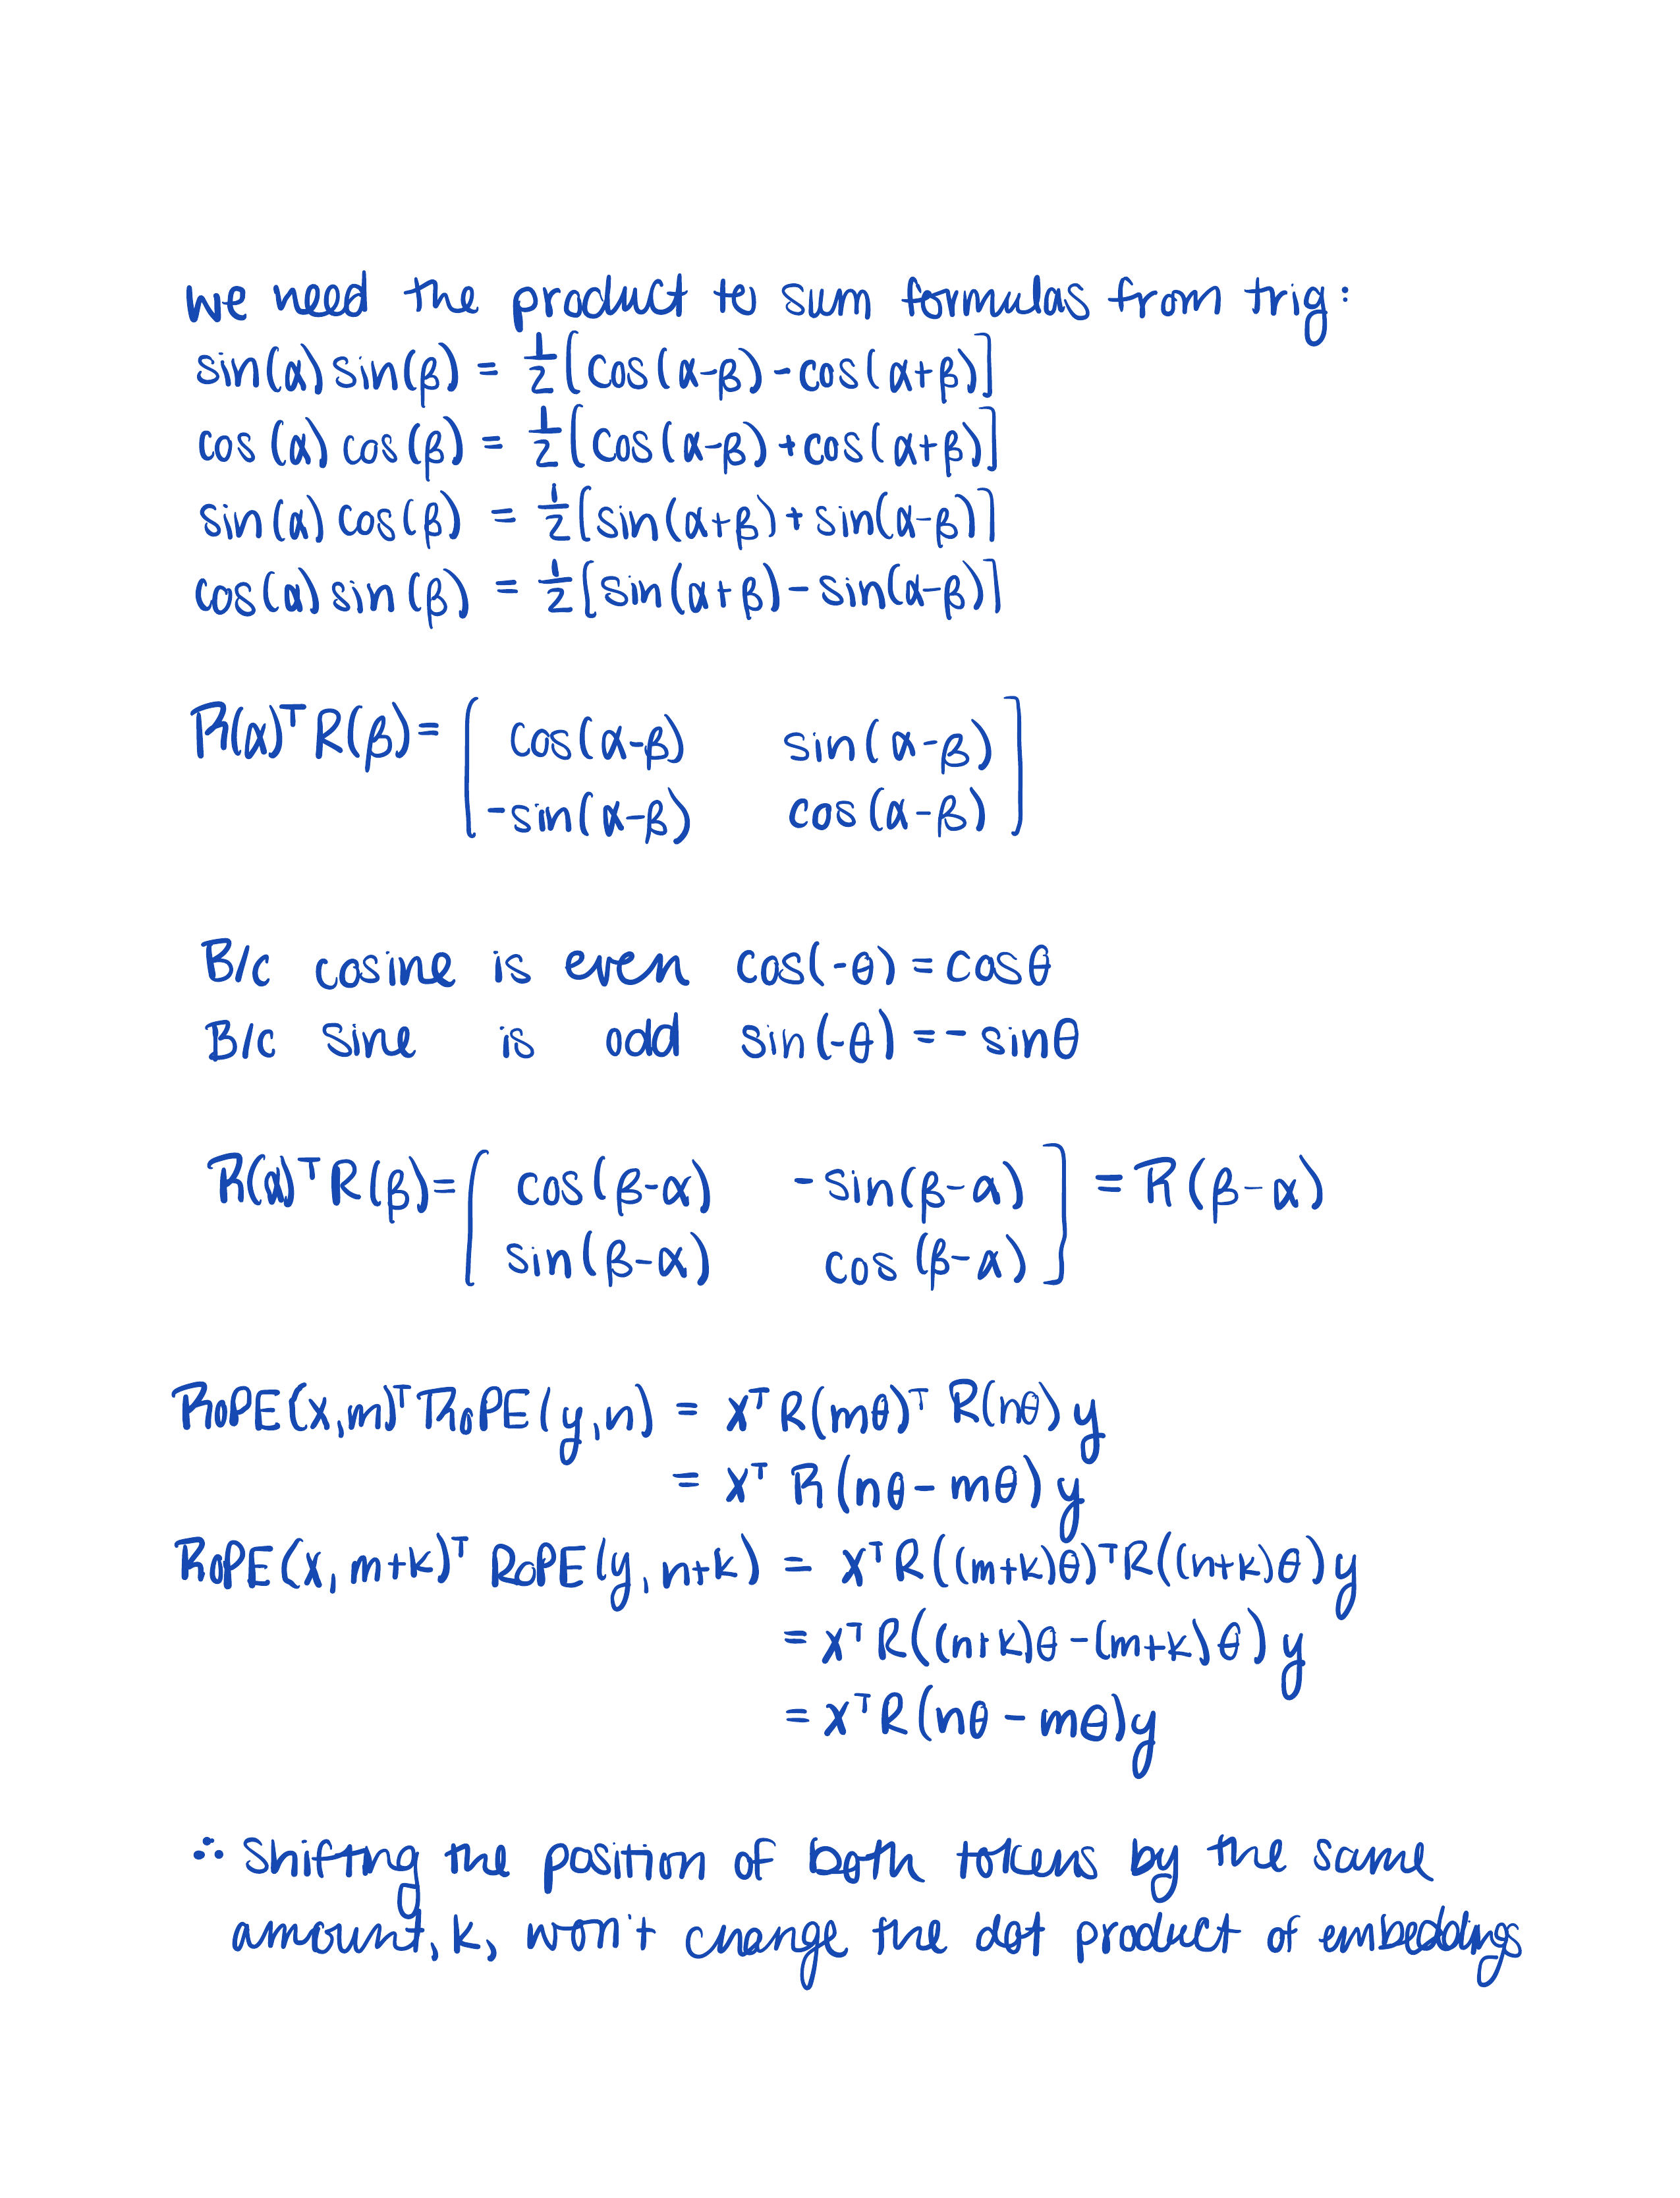 we need the product to sum formulas from trig:
sin(α) sin(β) = 1/2 [cos(α-β) - cos(α+β)]
cos(α) cos(β) = 1/2 [cos(α-β) + cos(α+β)]
sin(α) cos(β) = 1/2 [sin(α+β) + sin(α-β)]
cos(α) sin(β) = 1/2 [sin(α+β) - sin(α-β)]
R(α)ᵀ R(β) = [cos(α-β) sin(α-β)
-sin(α-β) cos(α-β)]
B/c cosine is even cos(-θ) = cosθ
B/c sine is odd sin(-θ) = - sinθ
R(α)ᵀ R(β) = [cos(β-α) -sin(β-α)
sin(β-α) cos(β-α)] = R(β-α)
RoPE(x,m)ᵀ RoPE(y,n) = xᵀ R(mθ)ᵀ R(nθ) y
= xᵀ R(nθ - mθ) y
RoPE(x, m+k)ᵀ RoPE(y, n+k) = xᵀ R((m+k)θ)ᵀ R((n+k)θ) y
= xᵀ R((n+k)θ - (m+k)θ) y
= xᵀ R(nθ - mθ) y
∴ Shifting the position of both tokens by the same
amount, k, won't change the dot product of embeddings